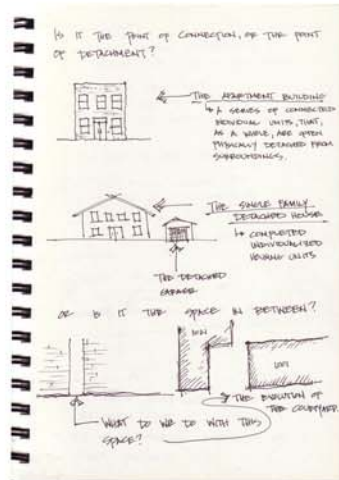 IS IT THE POINT OF CONNECTION, OR THE POINT
OF DETACHMENT?
THE APARTMENT BUILDING
↳ A SERIES OF CONNECTED
INDIVIDUAL UNITS, THAT,
AS A WHOLE, ARE OFTEN
PHYSICALLY DETACHED FROM
SURROUNDINGS.
THE SINGLE FAMILY
DETACHED HOUSE
↳ COMPLETED
INDIVIDUALIZED
HOUSING UNITS
THE DETACHED
GARAGE
OR IS IT THE SPACE IN BETWEEN?
THE EVOLUTION OF
THE COURTYARD.
WHAT DO WE DO WITH THIS
SPACE?